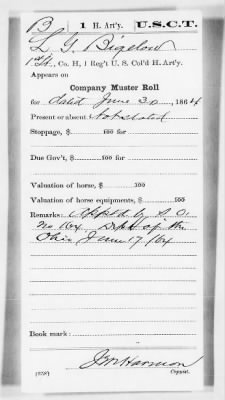 B 1 H. Art'y. U.S.C.T.
L. G. Bigelow
1st Lt., Co. H, 1 Reg't U. S. Col'd H. Art'y.
Appears on
Company Muster Roll
for dated June 30, 1864
Present or absent Not stated
Stoppage, $ 100 for
Due Gov't, $ 100 for
Valuation of horse, $ 100
Valuation of horse equipments, $ 100
Remarks: App't'd by S. O.
No. Dept of the
Ohio June 17/64
Book mark:
J M Harmon
(358) Copyist.